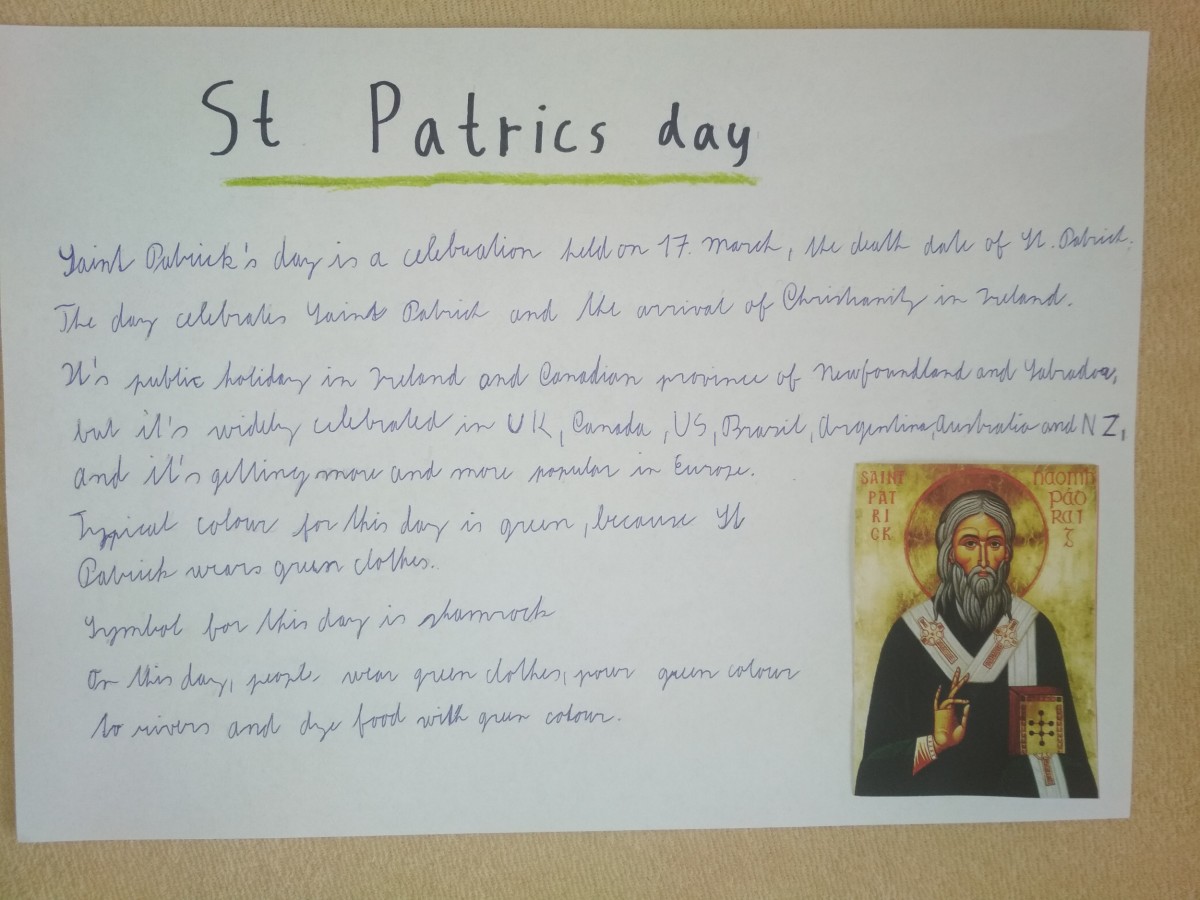 St Patrics day
Saint Patrick's day is a celebration held on 17. March, the death date of St. Patrick.
The day celebrates Saint Patrick and the arrival of Christianity in Ireland.
It's public holiday in Ireland and Canadian province of Newfoundland and Labrador,
but it's widely celebrated in UK, Canada, US, Brazil, Argentina, Australia and NZ,
and it's getting more and more popular in Europe.
Typical colour for this day is green, because St
Patrick wears green clothes.
Symbol for this day is shamrock
On this day, people wear green clothes, pour green colour
to rivers and dye food with green colour.
SAINT
PAT
RI
CK
NAOMH
PÁD
RAI
G